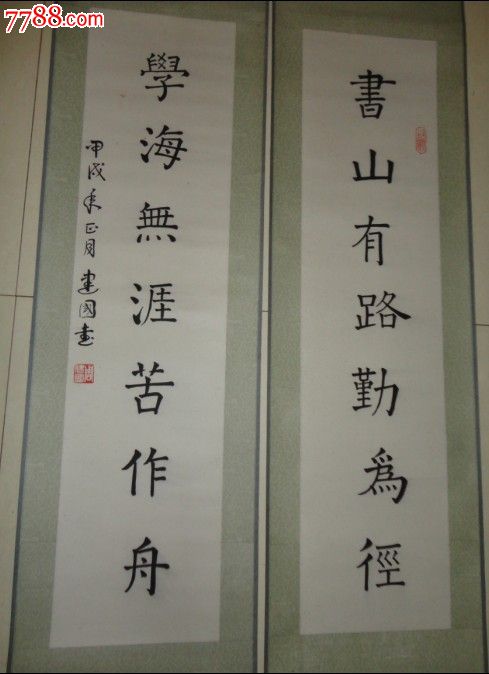 7788.com
中国收藏热线
書山有路勤為徑
學海無涯苦作舟
甲戌年正月建國書